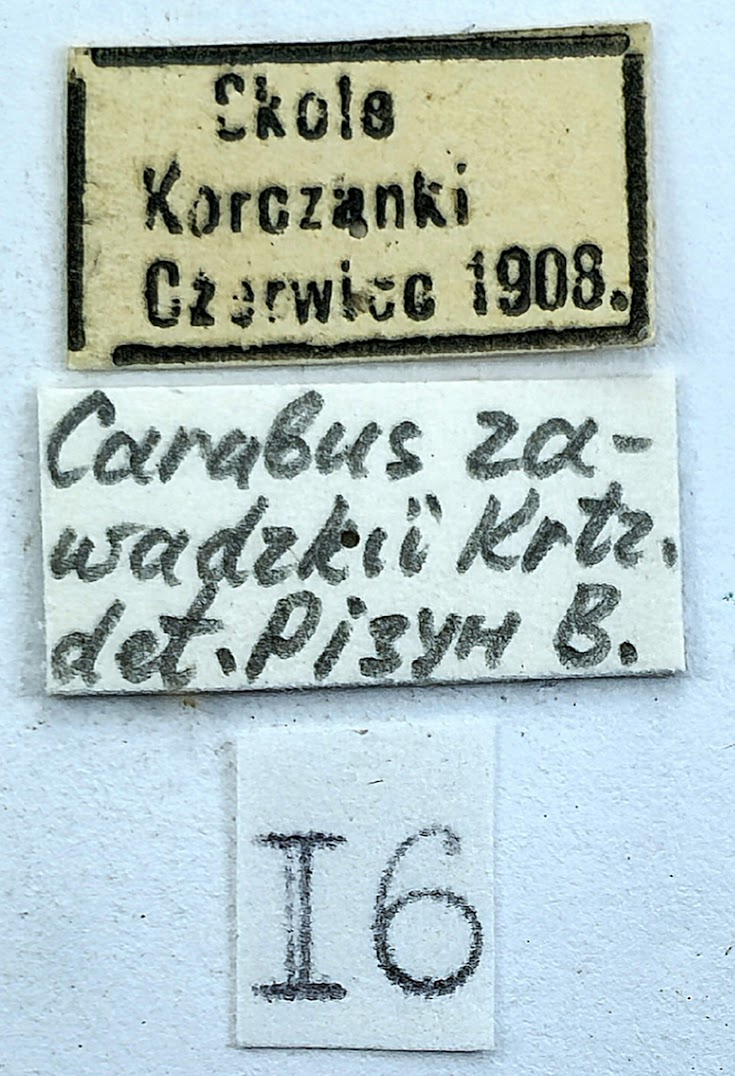 Skole
Korczanki
Czerwiec 1908.
Carabus za-
wadzkii Krtz.
det. Різун В.
I6